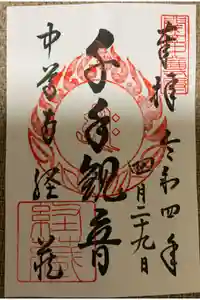 奉拝
令和四年
四月二十九日
千手観音
中尊寺経蔵